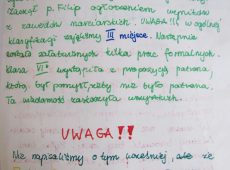 zaczął p. Filip ogłoszeniem wyników
z zawodów narciarskich. UWAGA!!! w ogólnej
klasyfikacji zajęliśmy III miejsce. Następnie
zostało załatwionych kilka spraw formalnych
klasa VI wystąpiła z propozycją patrona,
który, był pomysł, żeby nie było patrona,
Ta wiadomość zaskoczyła wszystkich.
UWAGA!!
Nie napisaliśmy o tym wcześniej, ale ze